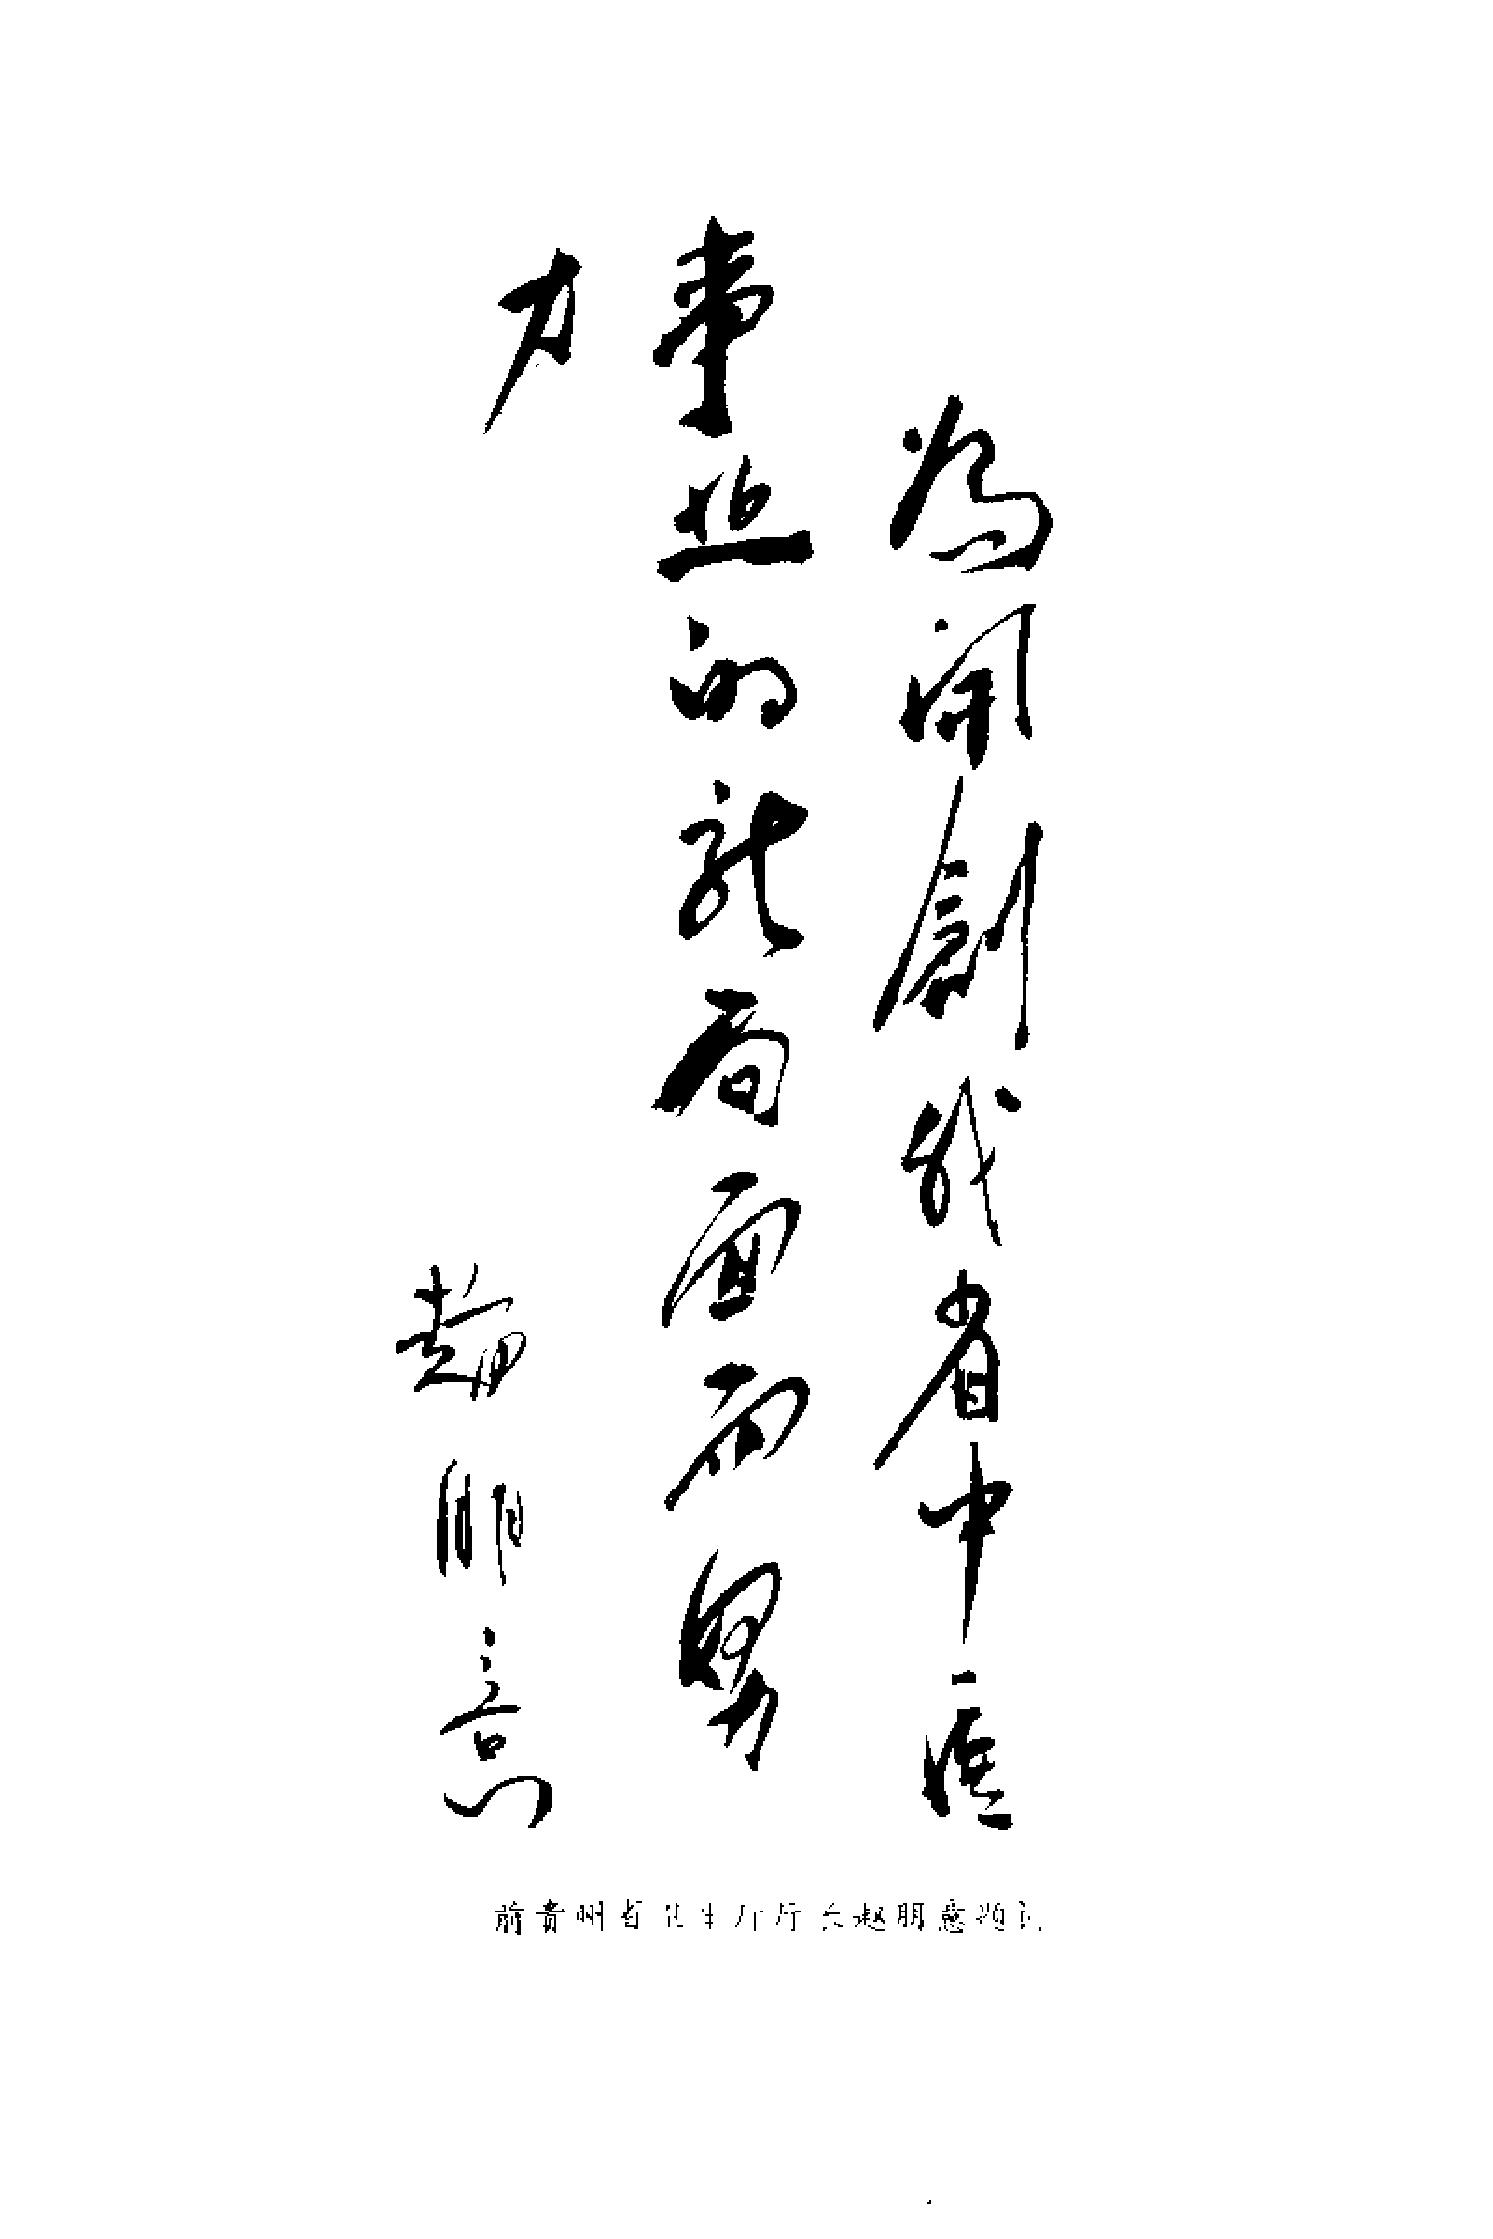 為開創我省中医
事业的新局面而努
力
趙朋意
前贵州省卫生厅厅长赵朋意题词